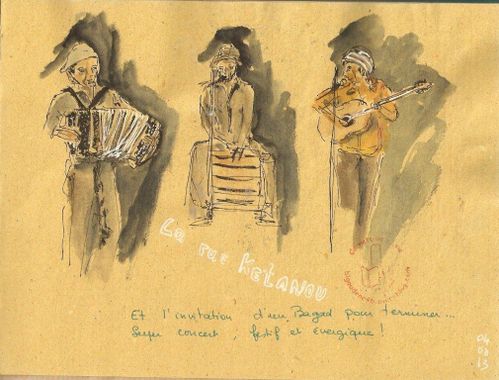 La rue Kétanou
Et l'invitation d'un Bagad pour terminer...
Super concert, festif et énergique !
04
08
13